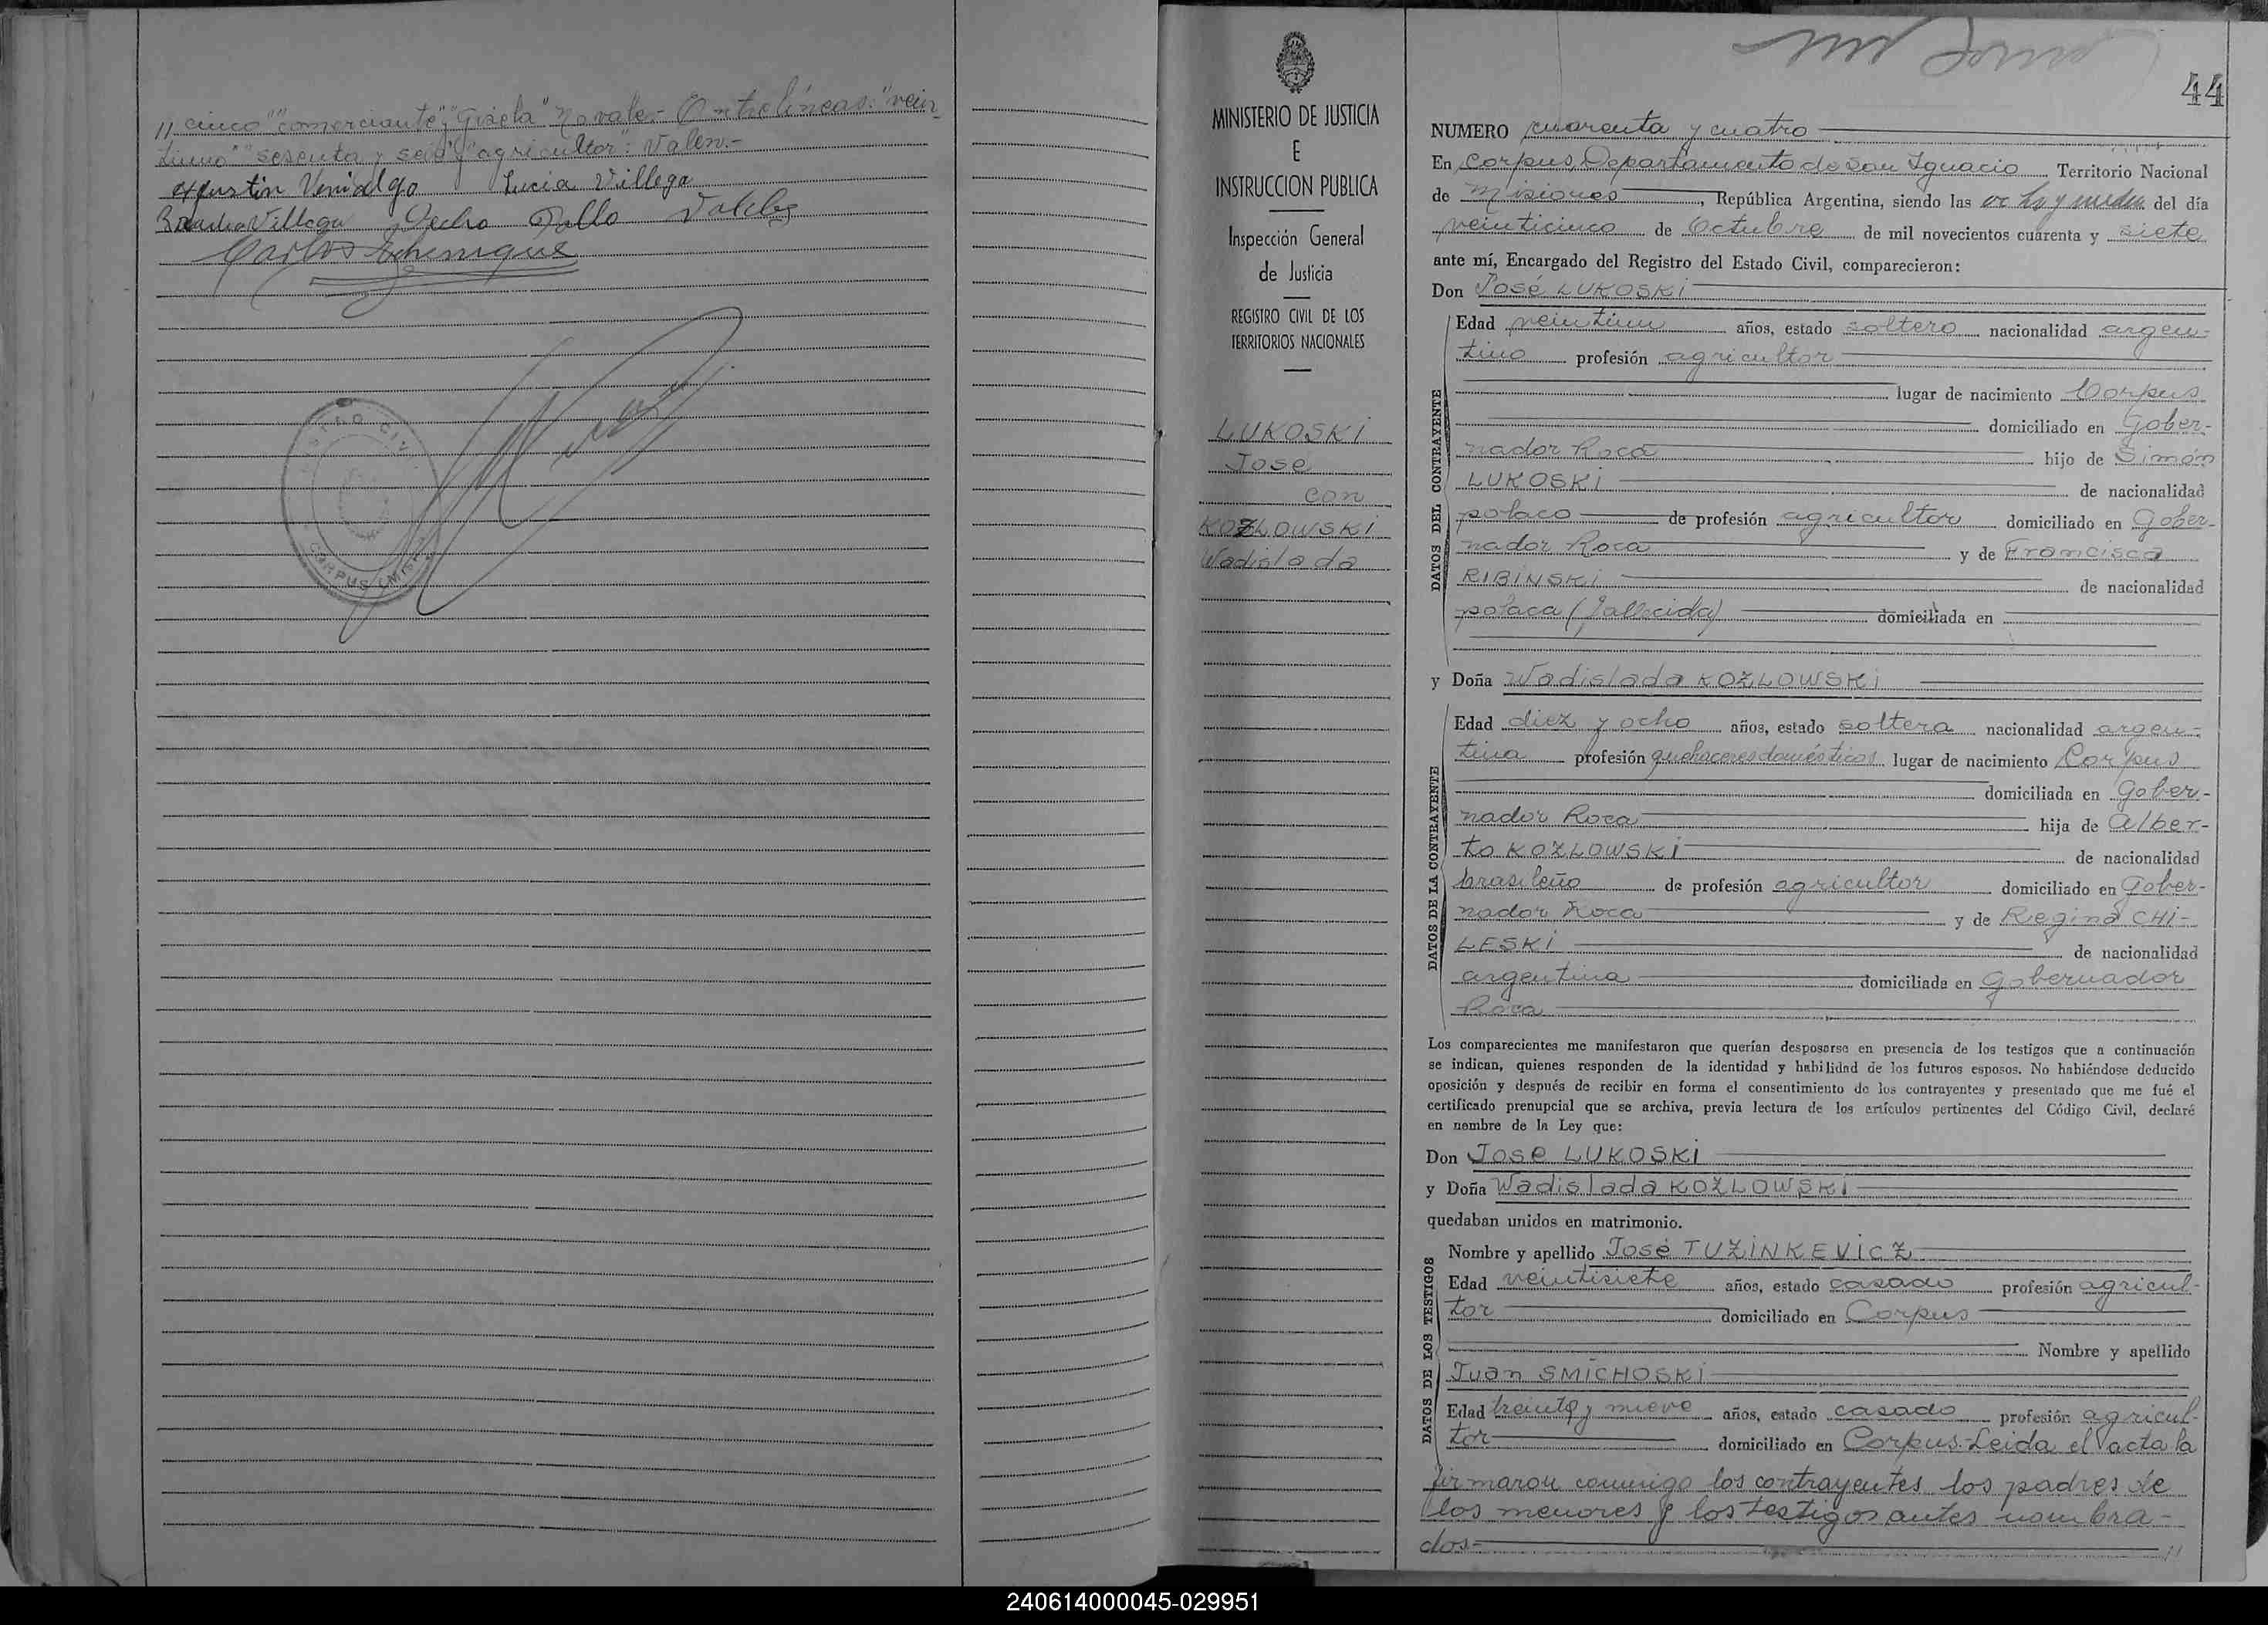 // cinco" "comerciante", "Gisela" no vale.- Entre líneas: "vein
tiuno" "sesenta y seis" y "agricultor": Valen.-
Agustin Venialgo Lucia Villega
Villega Pedro Vallejos
Carlos Echenique
CORPUS (MISIONES)
MINISTERIO DE JUSTICIA
E
INSTRUCCION PUBLICA
Inspección General
de Justicia
REGISTRO CIVIL DE LOS
TERRITORIOS NACIONALES
LUKOSKI
Jose
con
KOZLOWSKI
Wadislada
44
NUMERO cuarenta y cuatro
En Corpus, Departamento de San Ignacio Territorio Nacional
de Misiones, República Argentina, siendo las y media del día
veinticinco de Octubre de mil novecientos cuarenta y siete
ante mí, Encargado del Registro del Estado Civil, comparecieron:
Don José LUKOSKI
DATOS DEL CONTRAYENTE
Edad veintiun años, estado soltero nacionalidad argen-
tino profesión agricultor
lugar de nacimiento Corpus
domiciliado en Gober-
nador Roca hijo de Simón
LUKOSKI de nacionalidad
polaco de profesión agricultor domiciliado en Gober-
nador Roca y de Francisca
RIBINSKI de nacionalidad
polaca (fallecida) domiciliada en
y Doña Wadislada KOZLOWSKI
DATOS DE LA CONTRAYENTE
Edad diez y ocho años, estado soltera nacionalidad argen-
tina profesión quehaceres domésticos lugar de nacimiento Corpus
domiciliada en Gober-
nador Roca hija de Alber-
to KOZLOWSKI de nacionalidad
brasileño de profesión agricultor domiciliado en Gober-
nador Roca y de Regina CHI-
LESKI de nacionalidad
argentina domiciliada en Gobernador
Roca
Los comparecientes me manifestaron que querían desposarse en presencia de los testigos que a continuación
se indican, quienes responden de la identidad y habilidad de los futuros esposos. No habiéndose deducido
oposición y después de recibir en forma el consentimiento de los contrayentes y presentado que me fué el
certificado prenupcial que se archiva, previa lectura de los artículos pertinentes del Código Civil, declaré
en nombre de la Ley que:
Don José LUKOSKI
y Doña Wadislada KOZLOWSKI
quedaban unidos en matrimonio.
DATOS DE LOS TESTIGOS
Nombre y apellido José TUZINKEVICZ
Edad veintisiete años, estado casado profesión agricul-
tor domiciliado en Corpus
Nombre y apellido
Juan SMICHOSKI
Edad treinta y nueve años, estado casado profesión agricul-
tor domiciliado en Corpus.- Leida el acta la
firmaron conmigo los contrayentes los padres de
los menores y los testigos antes nombra-
dos.- //
240614000045-029951